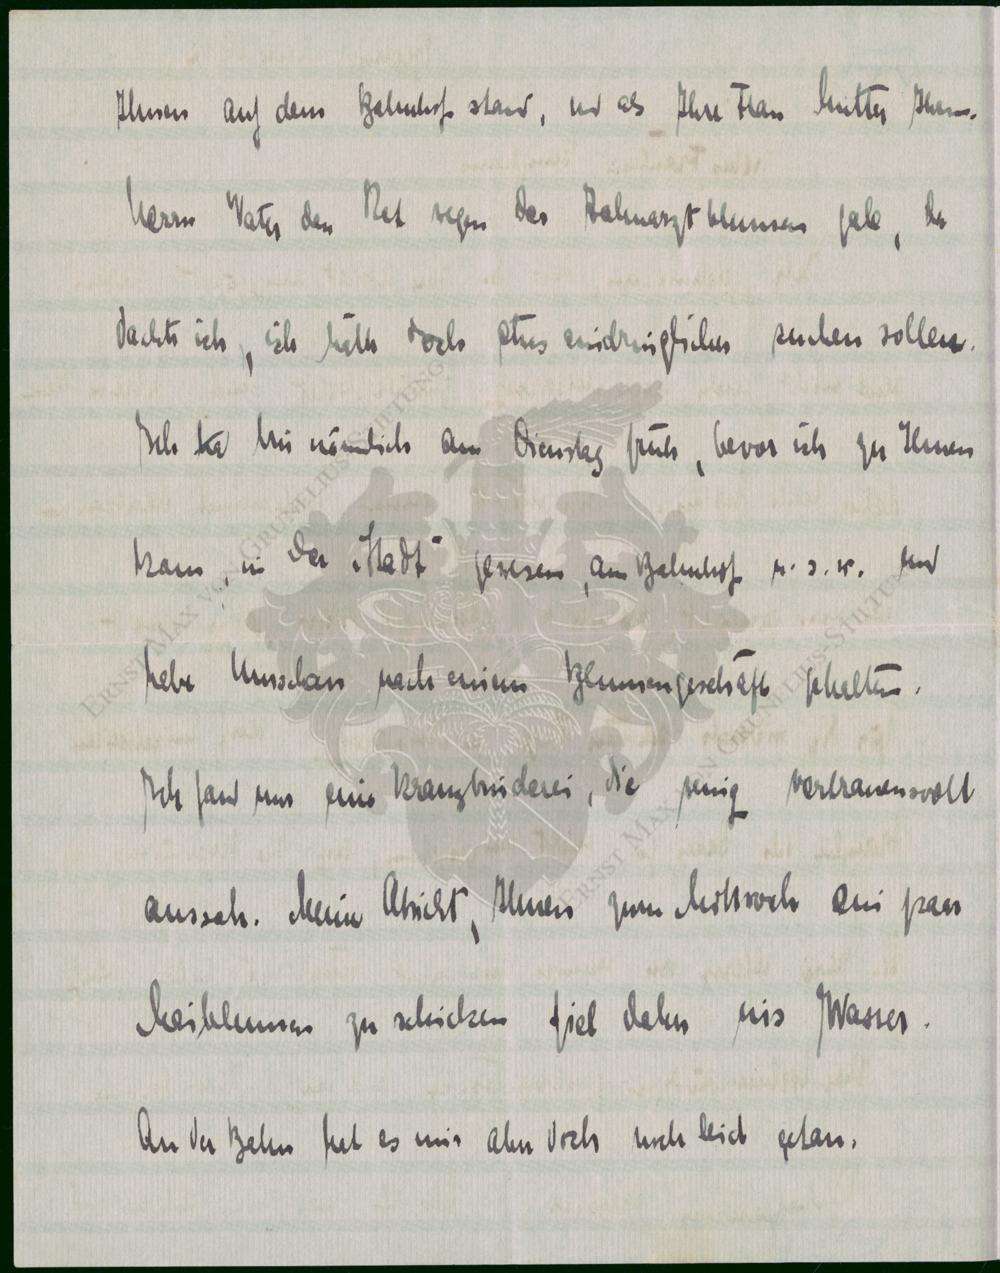 Ihnen auf dem Bahnhof stand, und als Ihre Frau Mutter Ihrem
Herrn Vater den Rat wegen der Zahnarztblumen gab, da
dachte ich, ich hätte doch etwas eindringlicher suchen sollen.
Ich bin nämlich am Dienstag früh, bevor ich zu Ihnen
kam, in der „Stadt" gewesen, am Bahnhof u. s. w. und
habe Umschau nach einem Blumengeschäft gehalten.
Ich fand nur eine Kranzbinderei, die wenig vertrauensvoll
aussah. Meine Absicht, Ihnen zum Mittwoch ein paar
Maiblumen zu schicken fiel daher ins Wasser.
An der Bahn hat es mir aber doch noch leid getan.
ERNST MAX VON GRUNELIUS-STIFTUNG
ERNST MAX VON GRUNELIUS-STIFTUNG